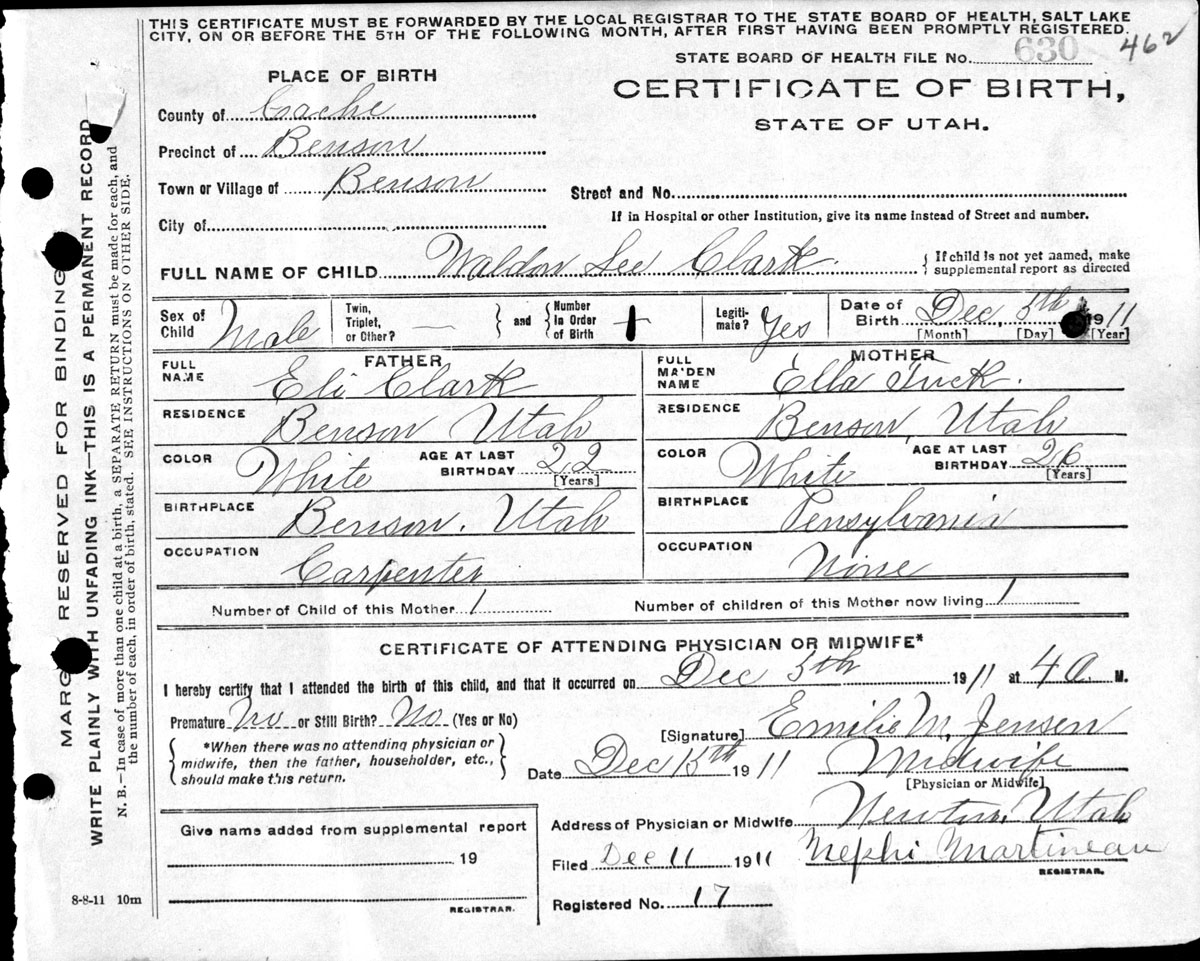 THIS CERTIFICATE MUST BE FORWARDED BY THE LOCAL REGISTRAR TO THE STATE BOARD OF HEALTH, SALT LAKE
CITY, ON OR BEFORE THE 5TH OF THE FOLLOWING MONTH, AFTER FIRST HAVING BEEN PROMPTLY REGISTERED.
STATE BOARD OF HEALTH FILE No. 630 462
PLACE OF BIRTH
CERTIFICATE OF BIRTH,
STATE OF UTAH.
County of Cache
Precinct of Benson
Town or Village of Benson
Street and No.
City of
If in Hospital or other Institution, give its name instead of Street and number.
FULL NAME OF CHILD Waldon Lee Clark.
If child is not yet named, make
supplemental report as directed
Sex of Child Male
Twin, Triplet, or Other? —
and
Number in Order of Birth
Legiti-mate? Yes
Date of Birth Dec, 5th 1911
[Month] [Day] [Year]
FATHER
FULL NAME Eli Clark
RESIDENCE Benson Utah
COLOR White
AGE AT LAST BIRTHDAY 22
[Years]
BIRTHPLACE Benson, Utah
OCCUPATION Carpenter
MOTHER
FULL MAIDEN NAME Ella Tuck.
RESIDENCE Benson, Utah
COLOR White
AGE AT LAST BIRTHDAY 26
[Years]
BIRTHPLACE Pensylvania
OCCUPATION None
Number of Child of this Mother 1
Number of children of this Mother now living 1
CERTIFICATE OF ATTENDING PHYSICIAN OR MIDWIFE*
I hereby certify that I attended the birth of this child, and that it occurred on Dec 5th 1911 at 4 a. M.
Premature No or Still Birth? No (Yes or No)
[Signature] Emilie M. Jensen
*When there was no attending physician or
midwife, then the father, householder, etc.,
should make this return.
Date Dec 1911 Midwife
[Physician or Midwife]
Give name added from supplemental report
19
REGISTRAR.
Address of Physician or Midwife Newton, Utah
Filed Dec 11 1911 Nephi Martineau
REGISTRAR.
Registered No. 17
8-8-11 10m
MARGIN RESERVED FOR BINDING
WRITE PLAINLY WITH UNFADING INK—THIS IS A PERMANENT RECORD
N. B.—In case of more than one child at a birth, a SEPARATE RETURN must be made for each, and
the number of each, in order of birth, stated. SEE INSTRUCTIONS ON OTHER SIDE.